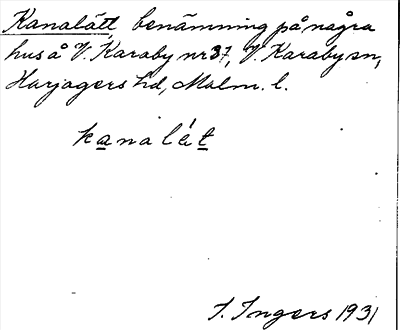 Kanalätt, benämning på några
hus å V. Karaby nr 37, V. Karaby sn,
Harjagers hd, Malm. l.
kanalét
I. Ingers 1931